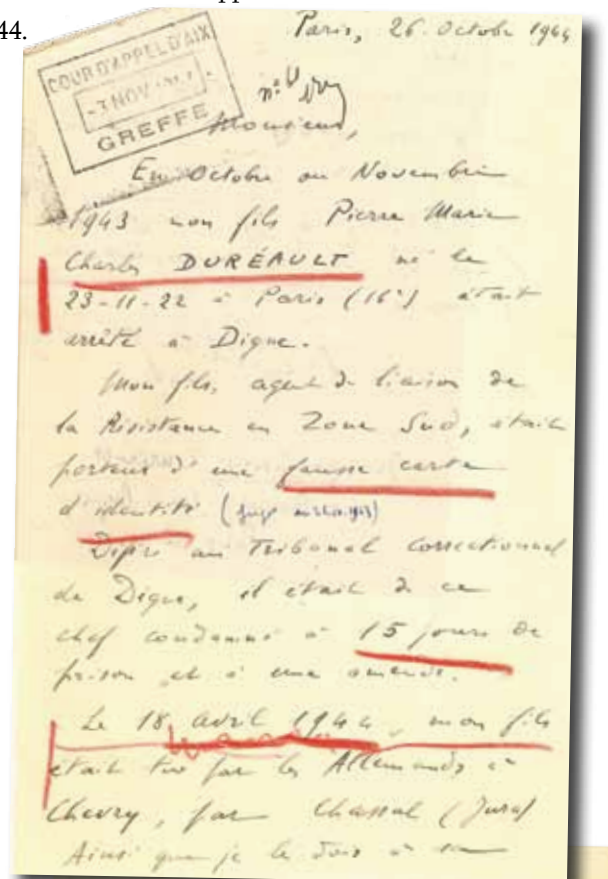 44.
Paris, 26. Octobre 1944
COUR D'APPEL D'AIX
-3 NOV 1944
GREFFE
n°
Monsieur,
En Octobre ou Novembre
1943 mon fils Pierre Marie
Charles DURÉAULT né le
23-11-22 à Paris (16e) était
arrêté à Digne.
Mon fils, agent de liaison de
la Résistance en Zone Sud, était
porteur d'une fausse carte
d'identité (jugé
Déféré au Tribunal correctionnel
de Digne, il était de ce
chef condamné à 15 jours de
prison et à une amende.
Le 18 avril 1944, mon fils
était tué par les Allemands à
Chevry, par Chassal (Jura)
Ainsi que je le dois à sa